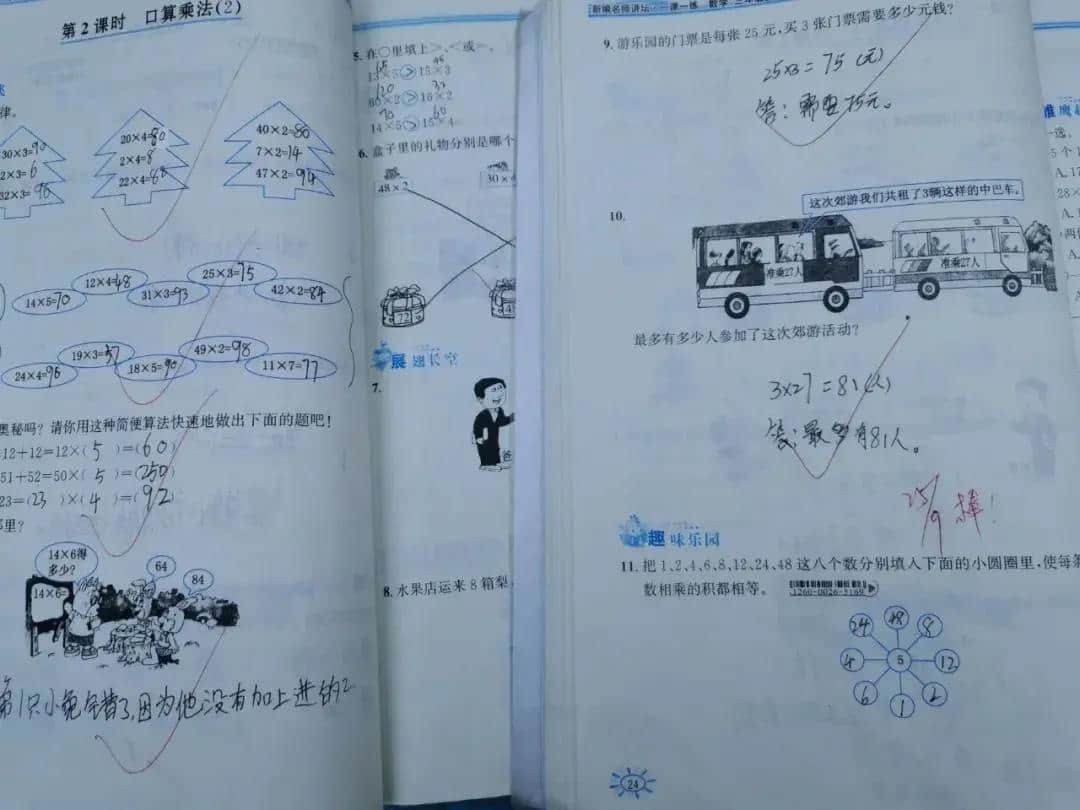 第2课时 口算乘法(2)
律。
30×3=90
2×3=6
32×3=96
20×4=80
2×4=8
22×4=88
40×2=80
7×2=14
47×2=94
14×5=70
12×4=48
31×3=93
25×3=75
42×2=84
24×4=96
19×3=57
18×5=90
49×2=98
11×7=77
奥秘吗?请你用这种简便算法快速地做出下面的题吧!
12+12=12×(5)=(60)
51+52=50×(5)=(250)
23=(23)×(4)=(92)
哪里?
14×6得
多少?
64
84
14×6=
第1只小兔错了,因为他没有加上进的2
5. 在○里填上>、<或=。
>15×3
>16×2
14×5>15×4
6. 盒子里的礼物分别是哪个
48×2
30×
72
展翅长空
7.
爸
8. 水果店运来8箱梨,
新编名师讲坛·一课一练 数学
9. 游乐园的门票是每张25元,买3张门票需要多少元钱?
25×3=75(元)
答:需要75元。
10.
这次郊游我们共租了3辆这样的中巴车。
准乘27人
准乘27人
最多有多少人参加了这次郊游活动?
3×27=81(人)
答:最多有81人。
25/9 棒!
趣味乐园
11. 把1、2、4、6、8、12、24、48这八个数分别填入下面的小圆圈里,使每条
数相乘的积都相等。
24
48
8
4
5
12
6
1
2
24
一选。
5个1
A.17
28×
A.1